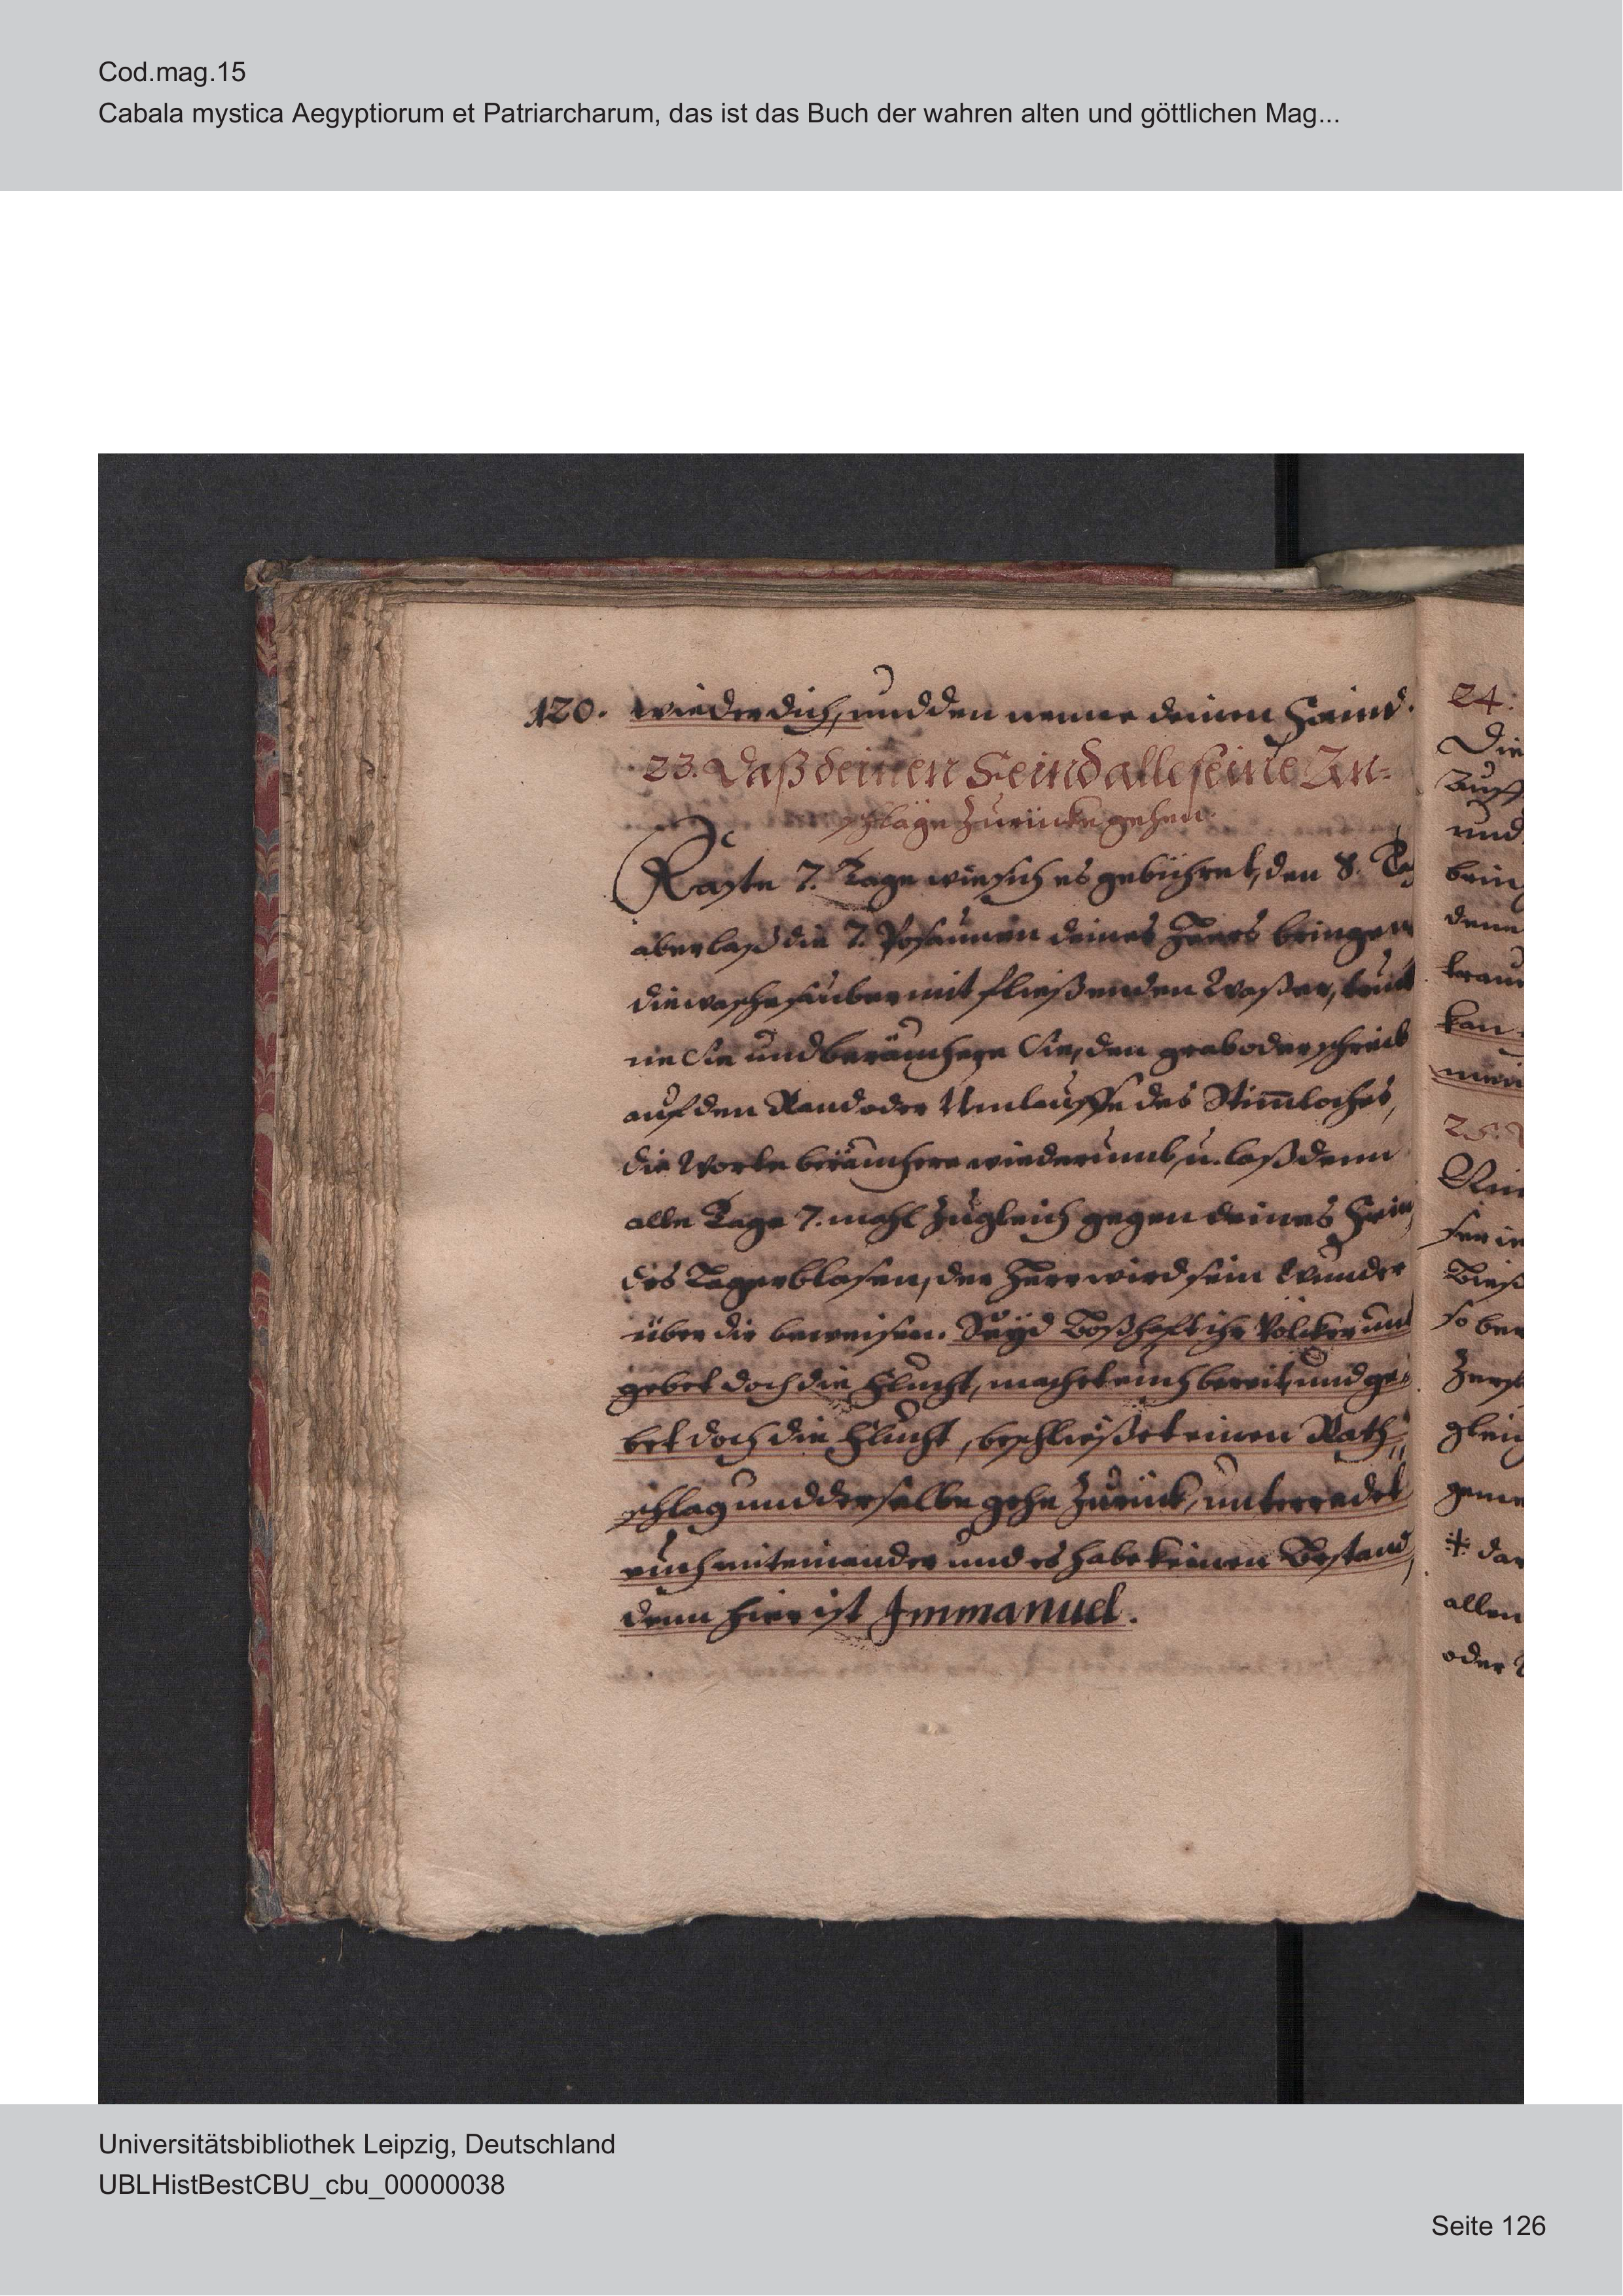 Cod.mag.15
Cabala mystica Aegyptiorum et Patriarcharum, das ist das Buch der wahren alten und göttlichen Mag...
120. wieder dich, und den nenne deinen Feind.
23. Daß deinen Feind alle seine An-
schläge zurücke gehen.
Faste 7. Tage wie sichs gebühret, den 8. Tag
aber laß die 7. Posaunen deines Heers bringen
die wasche sauber mit fließenden Waßer, truck
ne Sie und beräuchere Sie, den grab oder schreib
auf den Rand oder Umlauffe des Stim̅loches,
die Worte beräuchere wiederumb, u. laß denn
alle Tage 7. mahl zugleich gegen deines Fein
des Lager blasen, der Herr wird sein Wunder
über die beweisen. Seyd Boßhafft ihr Völcker und
gebet doch die Flucht, machet euch bereit, und ge-
bet doch die Flucht, beschließet einen Rath-
schlag und derselbe gehe zurück, unterredet
euch miteinander und es habe keinen Bestand,
denn hier ist Immanuel.
24.
Die
und
kan
25.
so
allen
oder
Universitätsbibliothek Leipzig, Deutschland
UBLHistBestCBU_cbu_00000038
Seite 126